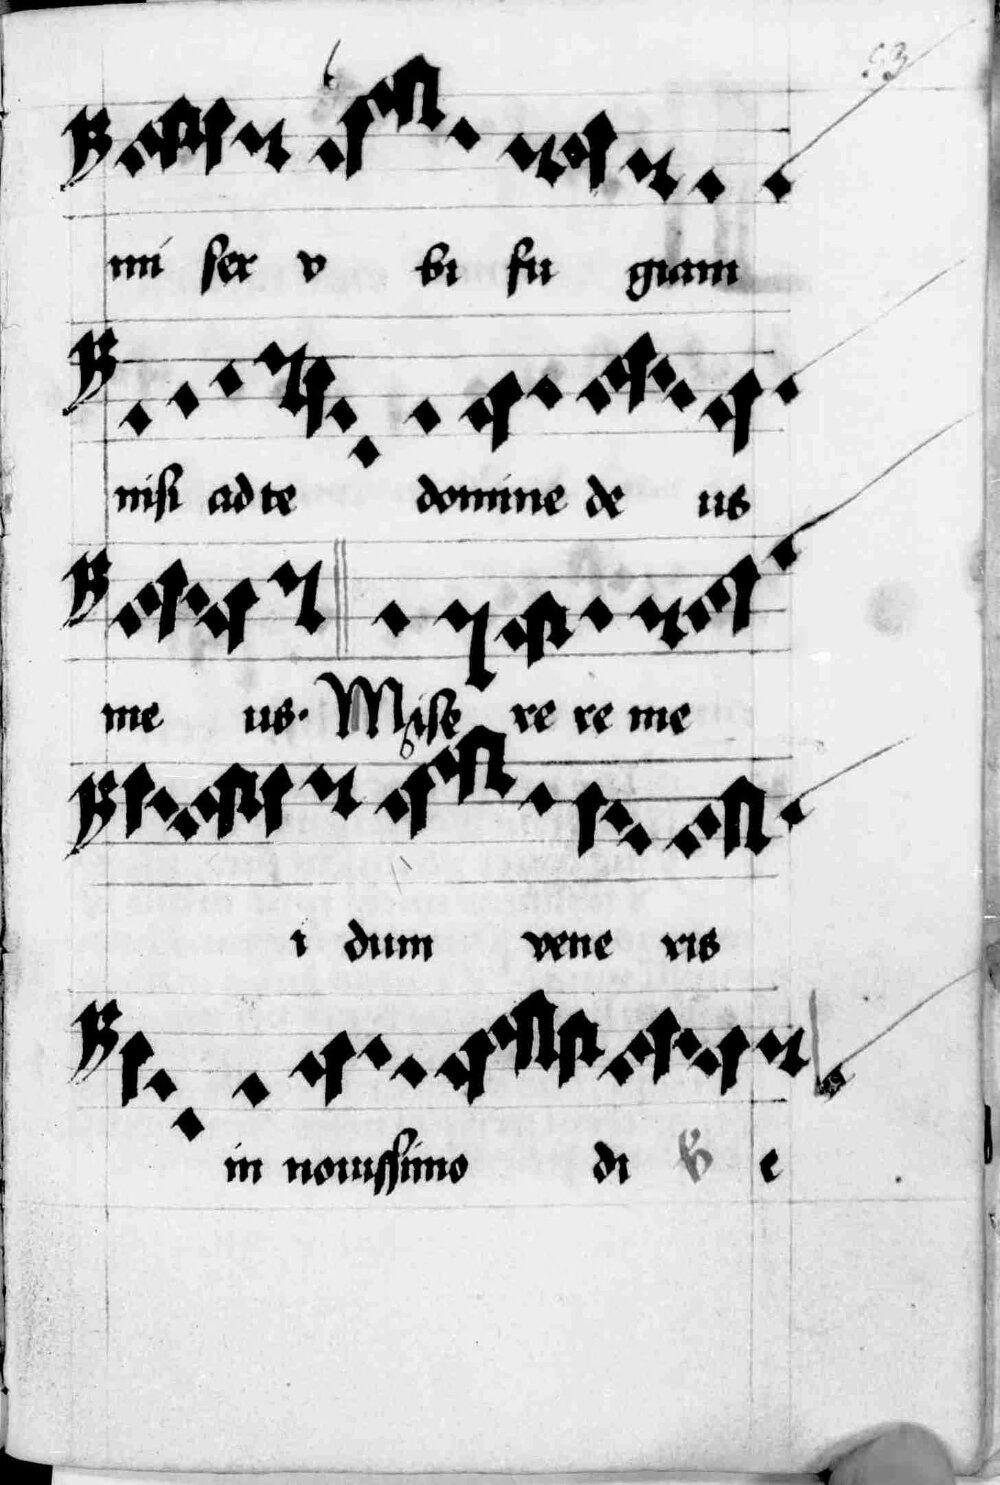 53
mi ser v bi fu giam
nisi ad te domine de us
me us. Mise re re me
i dum vene ris
in nouissimo di e